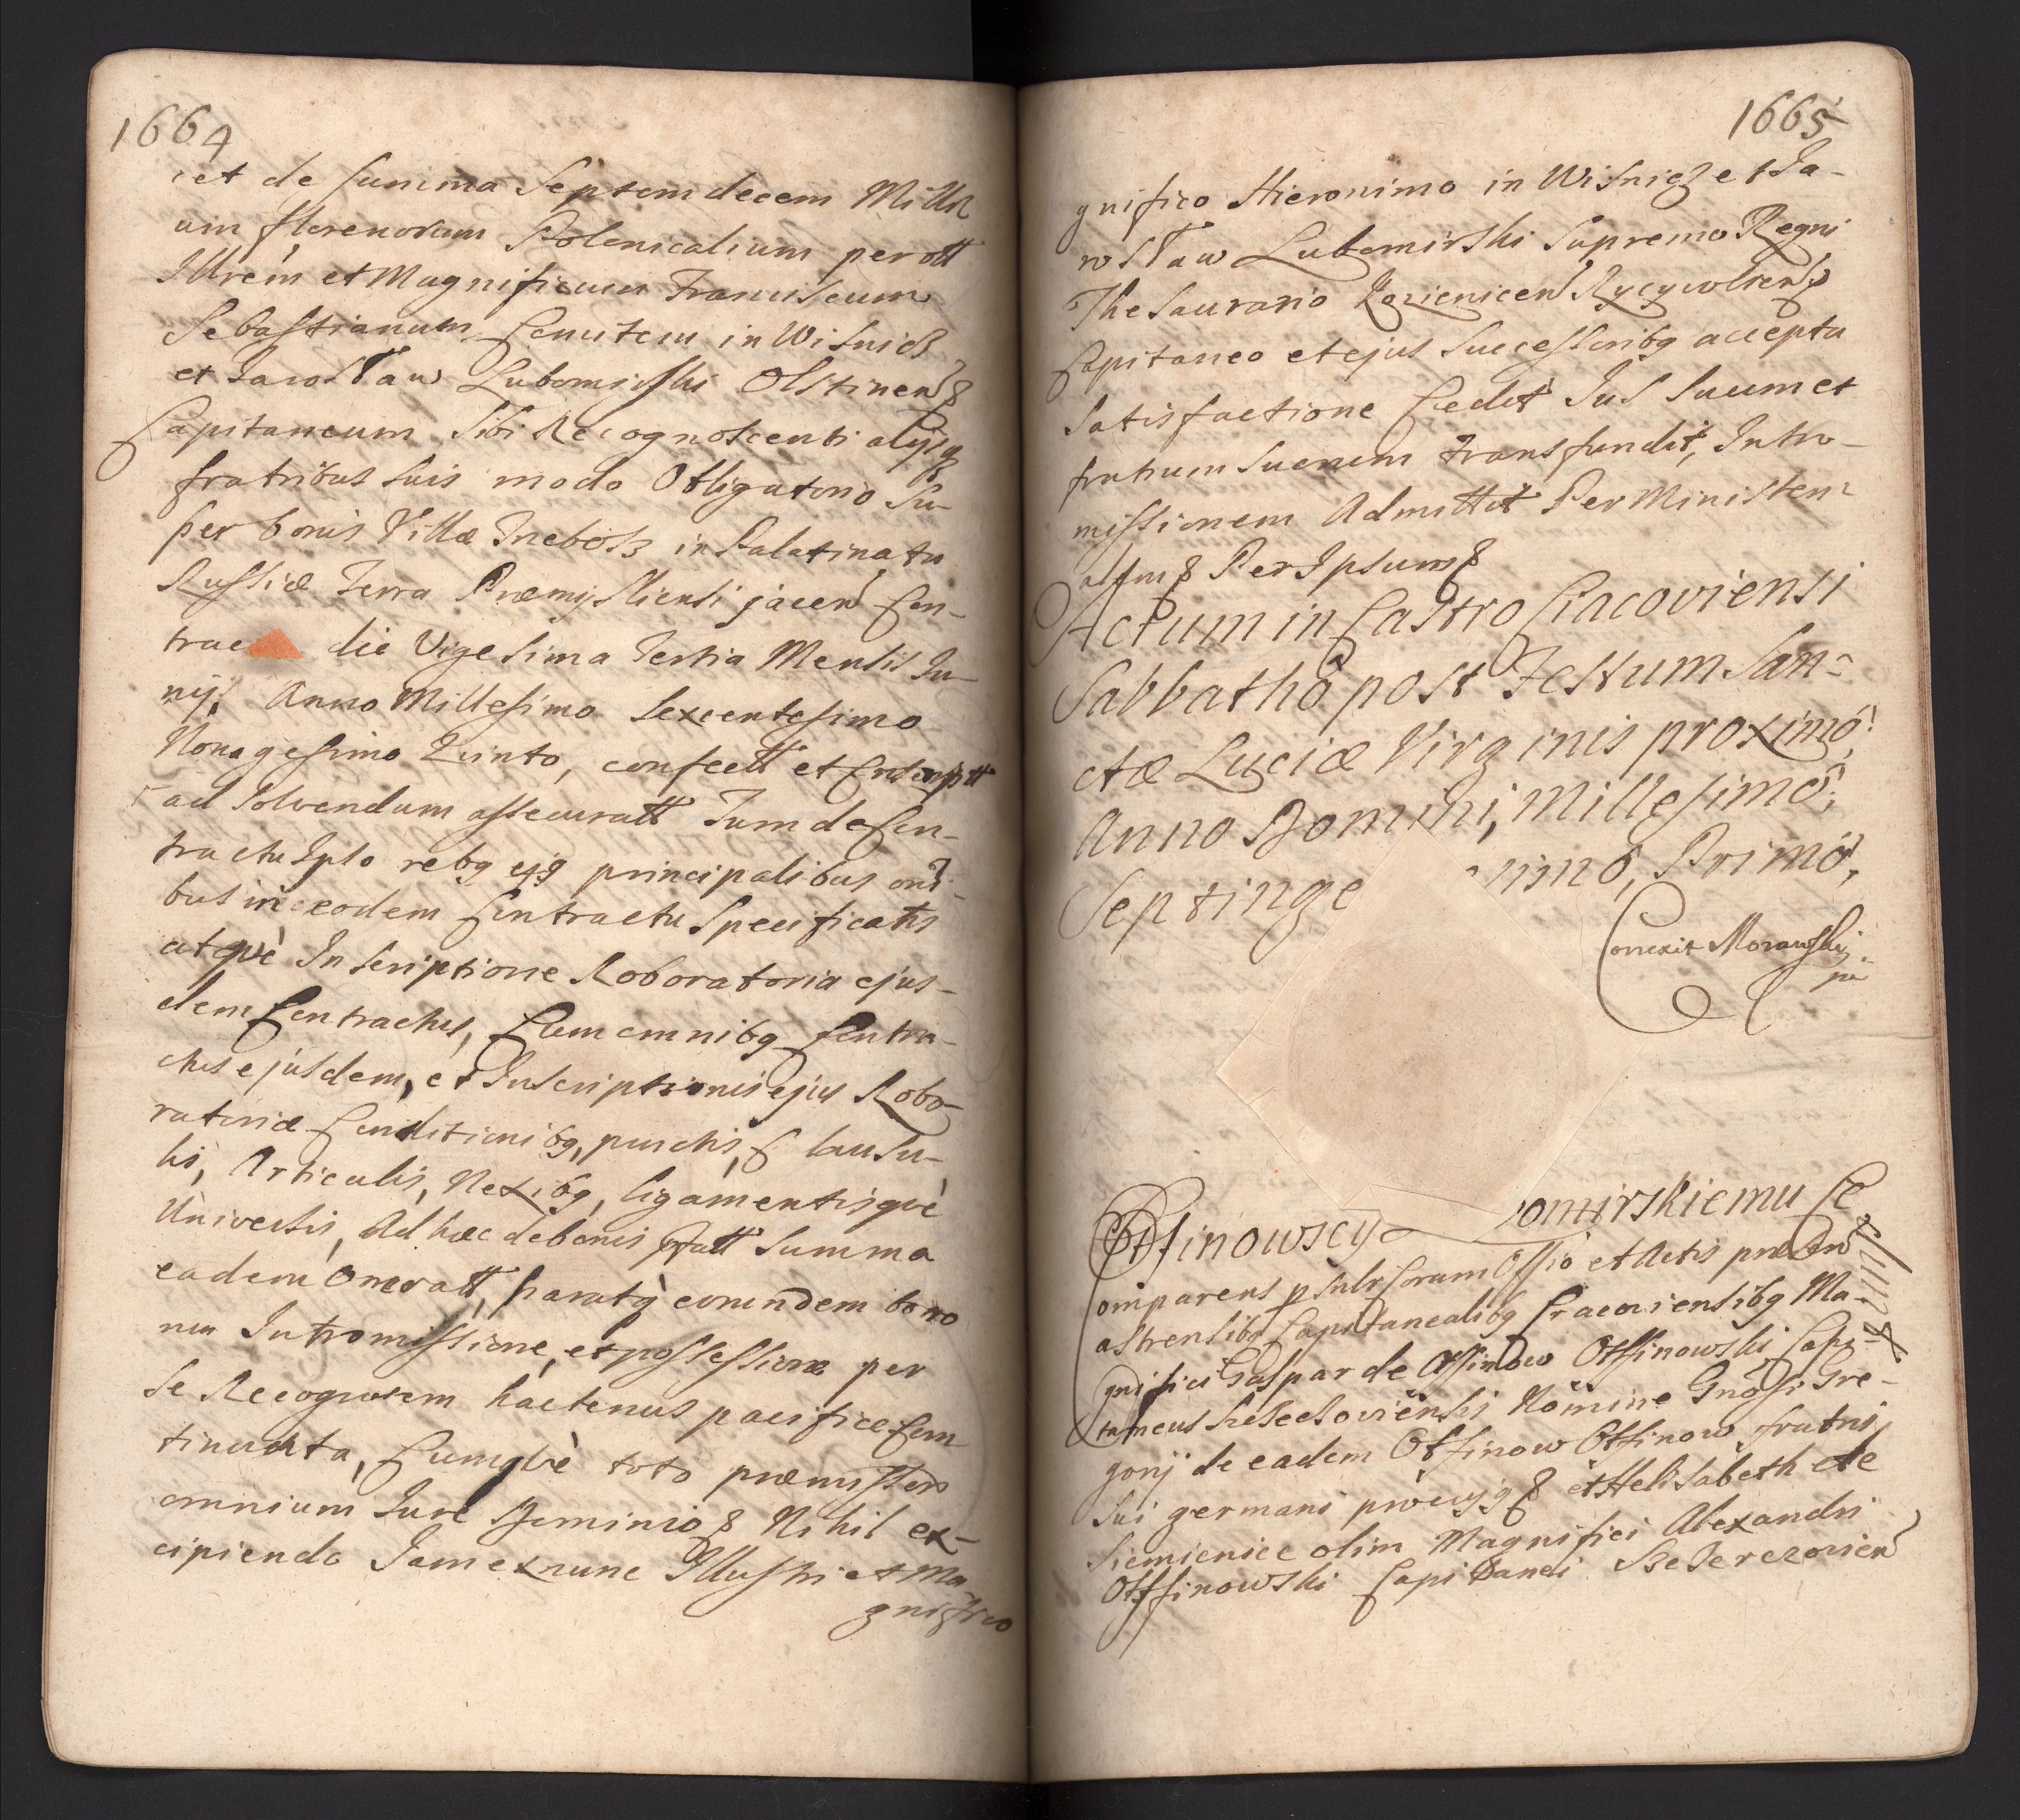 1664
et de summa Septem decem Milli
um florenorum Polonicalium per ott
Illrem et Magnificum Franciscum
Sebastianum Comitem in Wisnicz
et Jarosław Lubomirski Olstinen &
Capitaneum Sibi Recognoscenti alijsq
fratribus suis modo Obligatorio Su-
per bonis Villæ in Palatinatu
Russiæ Terra Præmysliensi jacen Con-
trac die Vigesima Tertia Mensis Ju-
nij, Anno Millesimo Sexcentesimo
Nonagesimo Quinto, confectt et
ad Solvendum assecuratt Tum de Con-
tractu Ipso rebq ejq principalibus oni-
bus in eodem Contractu Specificatis
atquè Inscriptione Roboratoria ejus-
dem Contractus, Cum omnibq Contra-
ctus ejusdem, et Inscriptionis ejus Robo-
ratoriæ Conditionibq, punctis, Clausu-
lis, Articulis, Nexibq, ligamentisquè
Universis, Ad hæc de bonis Summa
eadem Oneratt, eorundem bono
rum Intromissione, et possessione per
se Recognoscem hactenus pacifice Con-
tinuata, Cumquè toto præmissor
omnium Jure Dominio & Nihil ex-
cipiendo Jam ex nunc Illustri et Ma-
gnifico
1665
gnifico Hieronimo in Wisnicz et Ja-
rosław Lubomirski Supremo Regni
Thesaurario Kozienicen Rycywolien &
Capitaneo et ejus Successoribq accepta
Satisfactione Cedit Jus Suum et
fratrum Suorum transfundit, Intro-
missionem Admittit Per Ministeri
alem & Per Ipsum &
Actum in Castro Cracoviensi
Sabbatho post Festum San-
ctæ Luciæ Virginis proximo,
Anno Domini, Millesimo,
Septinge simo, Primo,
Correxit Morawski
mp
Otfinowscy omirskiemu Ce
dunt
Comparens psulr Coram Offio et Actis præsen
Castrensibq Capitanealibq Cracoviensibq Ma-
gnificus Gaspar de Otfinow Otffinowski Capi-
taneus Nomine Gnosi Gre-
gorij de eadem Otfinow Otfinow fratris
sui germani & et Helisabeth de
Siemienice olim Magnifici Alexandri
Otffinowski Capitanei